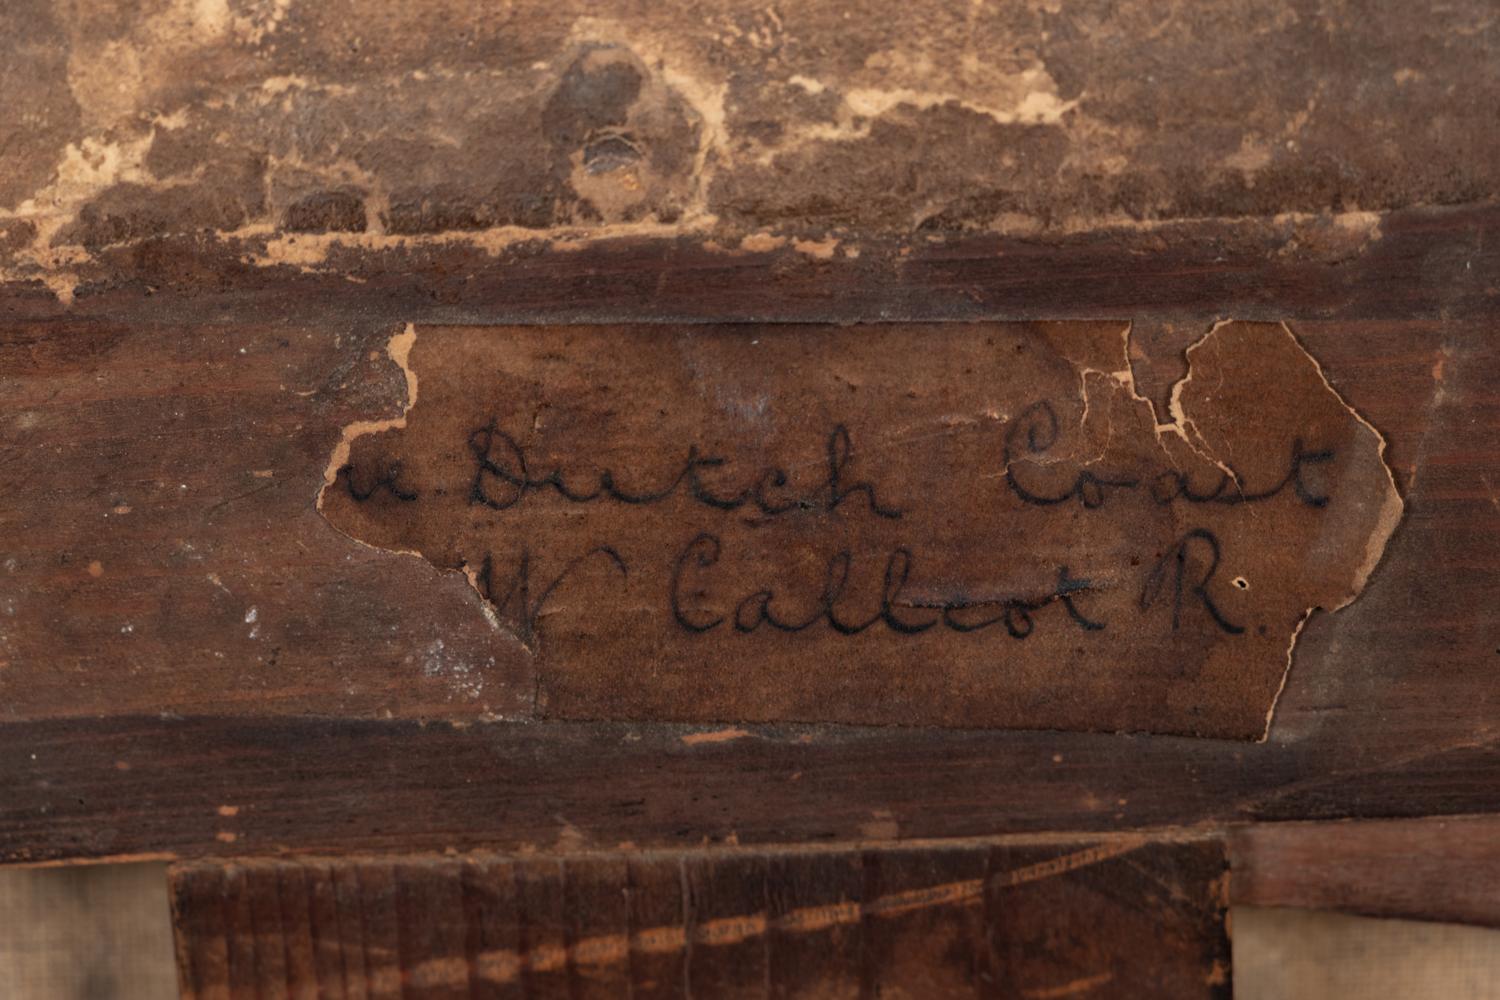 Dutch Coast
W Callcot R.